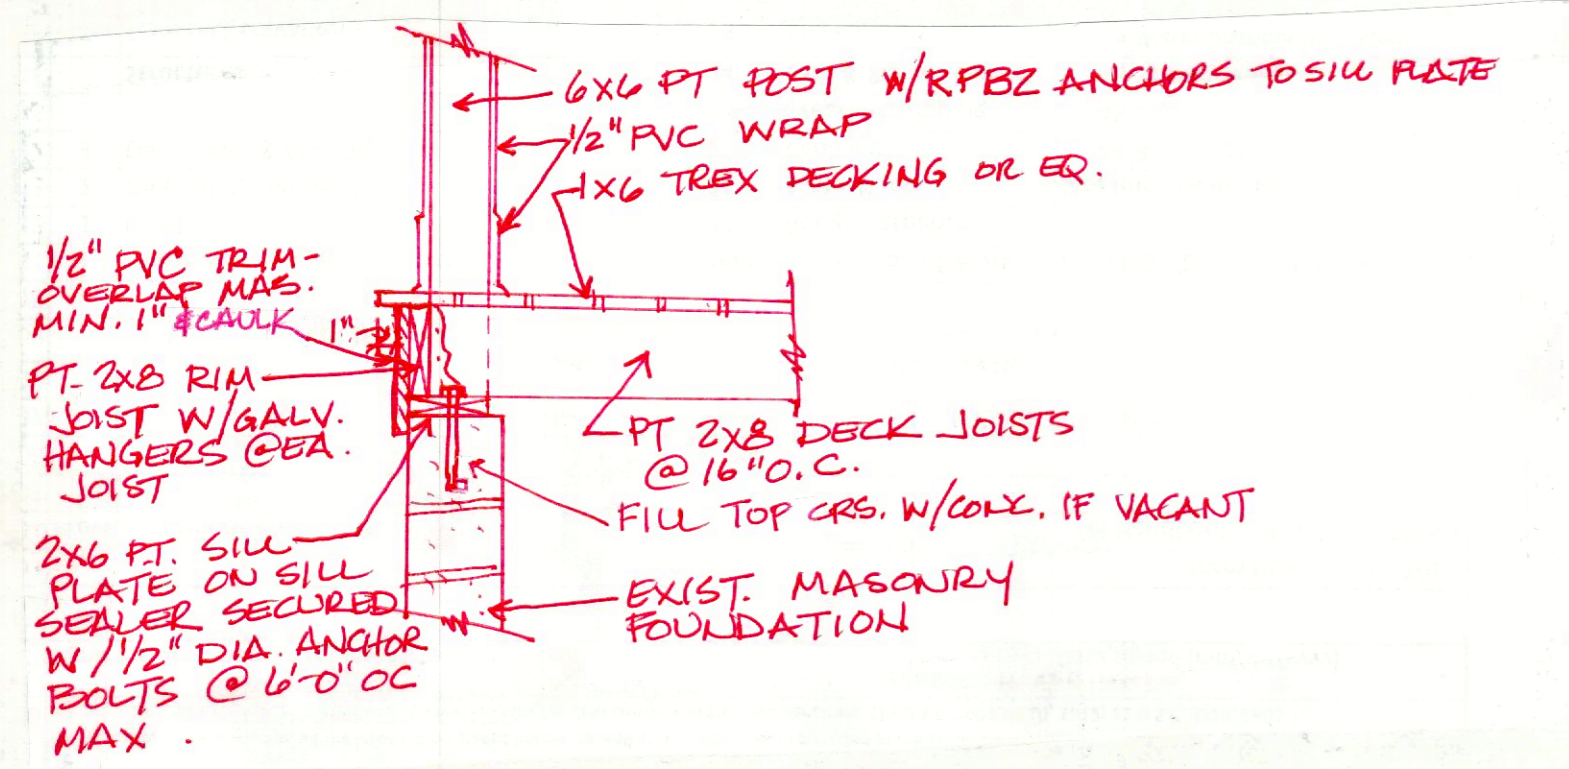 6X6 PT POST W/RPBZ ANCHORS TO SILL PLATE
1/2" PVC WRAP
1X6 TREX DECKING OR EQ.
1/2" PVC TRIM-
OVERLAP MAS.
MIN. 1" & CAULK
1"
PT 2X8 RIM
JOIST W/GALV.
HANGERS @EA.
JOIST
PT 2X8 DECK JOISTS
@ 16" O.C.
FILL TOP CRS. W/CONC. IF VACANT
2X6 P.T. SILL
PLATE ON SILL
SEALER SECURED
W/ 1/2" DIA. ANCHOR
BOLTS @ 6'-0" OC
MAX.
EXIST. MASONRY
FOUNDATION